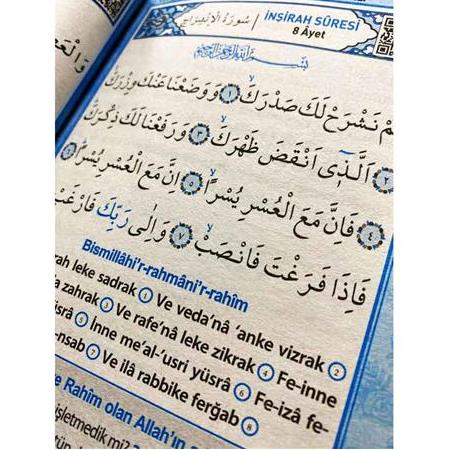 İNŞİRAH SÛRESİ
8 Âyet
سُورَةُ الْاِنْشِرَاحِ
بِسْمِ اللّٰهِ الرَّحْمٰنِ الرَّحٖيمِ
نَشْرَحْ لَكَ صَدْرَكَۙ ﴿١﴾ وَوَضَعْنَا عَنْكَ وِزْرَكَۙ ﴿٢﴾
اَلَّذٖٓي اَنْقَضَ ظَهْرَكَۙ ﴿٣﴾ وَرَفَعْنَا لَكَ ذِكْرَكَۜ ﴿٤﴾
فَاِنَّ مَعَ الْعُسْرِ يُسْرًاۙ ﴿٥﴾ اِنَّ مَعَ الْعُسْرِ يُسْرًاۜ
فَاِذَا فَرَغْتَ فَانْصَبْۙ ﴿٧﴾ وَاِلٰى رَبِّكَ فَارْغَبْ
Bismillâhi'r-rahmâni'r-rahîm
rah leke sadrak 1 Ve veda'nâ 'anke vizrak 2
a zahrak 3 Ve rafe'nâ leke zikrak 4 Fe-inne
üsrâ 5 İnne me'al-'usri yüsrâ 6 Fe-izâ fe-
-nsab 7 Ve ilâ rabbike ferğab 8
e Rahîm olan Allah'ın
işletmedik mi?